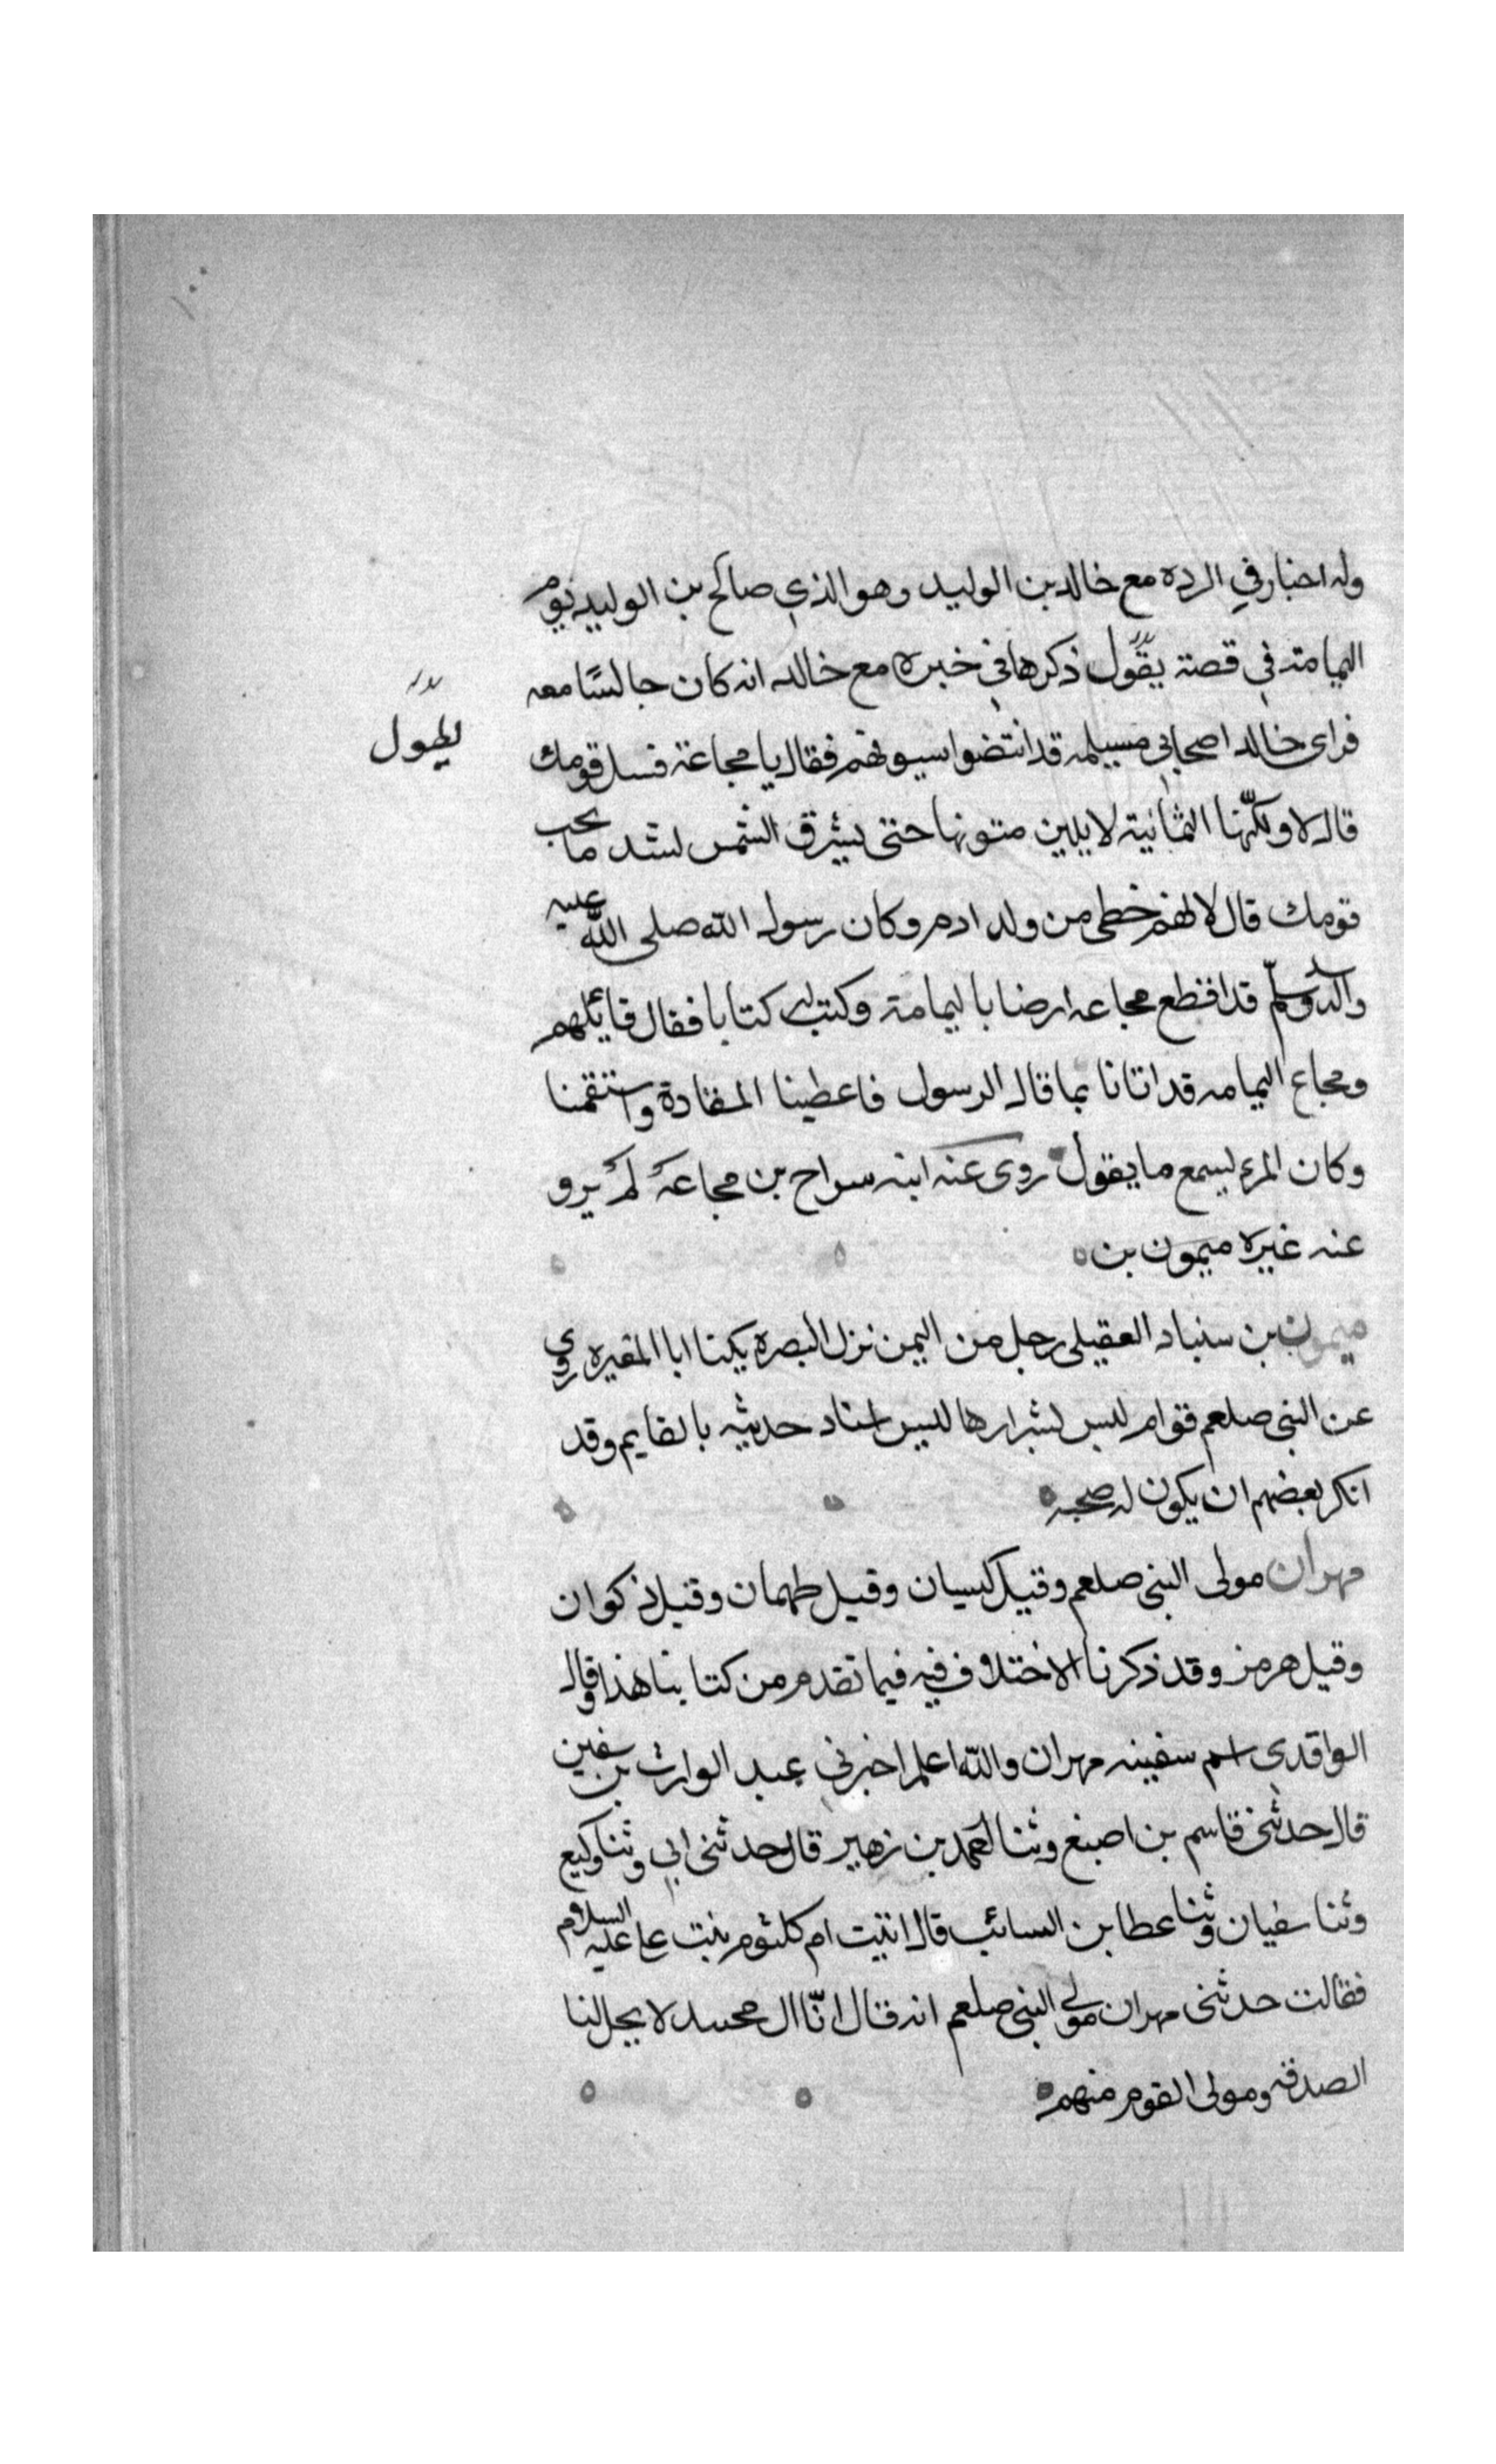 وله اخبار في الرده مع خالد بن الوليد وهو الذي صالح بن الوليد يوم
اليمامة في قصة يقول ذكرها في خبره مع خالد انه كان جالسًا معه
يطول
فراى خالد اصحاب مسيلمه قد انتضوا سيوفهم فقال يا مجاعة فسل قومك
قال لا ولكنّها اليمانية لا يلين متونها حتى يشرق الشمس لشد ما تحب
قومك قال لانهم حظى من ولد ادم وكان رسول الله صلى الله عليه
واله وسلّم قد اقطع مجاعه ارضا باليمامة وكتب له كتابا فقال قائلهم
ومجاع اليمامه قد اتانا بما قال الرسول فاعطينا المقادة واستقمنا
وكان المرء يسمع ما يقول روى عنه ابنه سراح بن مجاعة لم يرو
عنه غيره ميمون بن
ميمون بن سنباد العقيلي رجل من اليمن نزل البصره يكنا ابا المغيره روي
عن النبي صلعم قوام لبس لشرارها لليس اسناد حديثه بالقايم وقد
انكر بعضهم ان يكون له صحبه
مهران مولى النبي صلعم وقيل كيسان وقيل طهمان وقيل ذكوان
وقيل هرمز وقد ذكرنا الاختلاف فيه فيما تقدم من كتابنا هذا وقال
الواقدي اسم سفينه مهران والله اعلم اخبرني عبد الوارث بن سفين
قال حدثني قاسم بن اصبغ وثنا احمد بن زهير قال حدثني ابي وثنا وكيع
وثنا سفيان وثنا عطا بن السائب قال اتيت ام كلثوم بنت علي عليه السلام
فقالت حدثني مهران مولي النبي صلعم انه قال انّا ال محمد لا يحل لنا
الصدقه ومولى القوم منهم